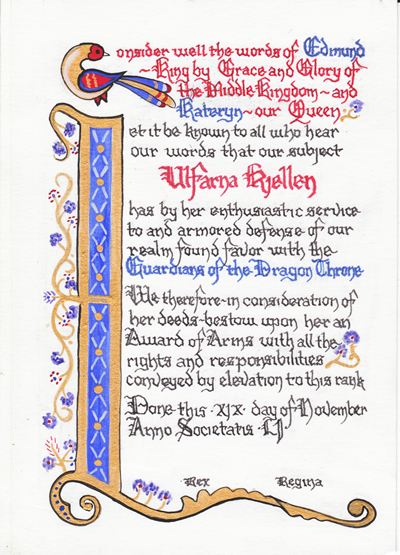 Consider well the words of Edmund
~King by Grace and Glory of
the Middle Kingdom~and
Kateryn~our Queen
Let it be known to all who hear
our words that our subject
Ulfarna Kjellen
has by her enthusiastic service
to and armored defense of our
realm found favor with the
Guardians of the Dragon Throne
We therefore~in consideration of
her deeds~bestow upon her an
Award of Arms with all the
rights and responsibilities
conveyed by elevation to this rank
Done this ·XIX· day of November
Anno Societatis ·LI
·Rex Regina